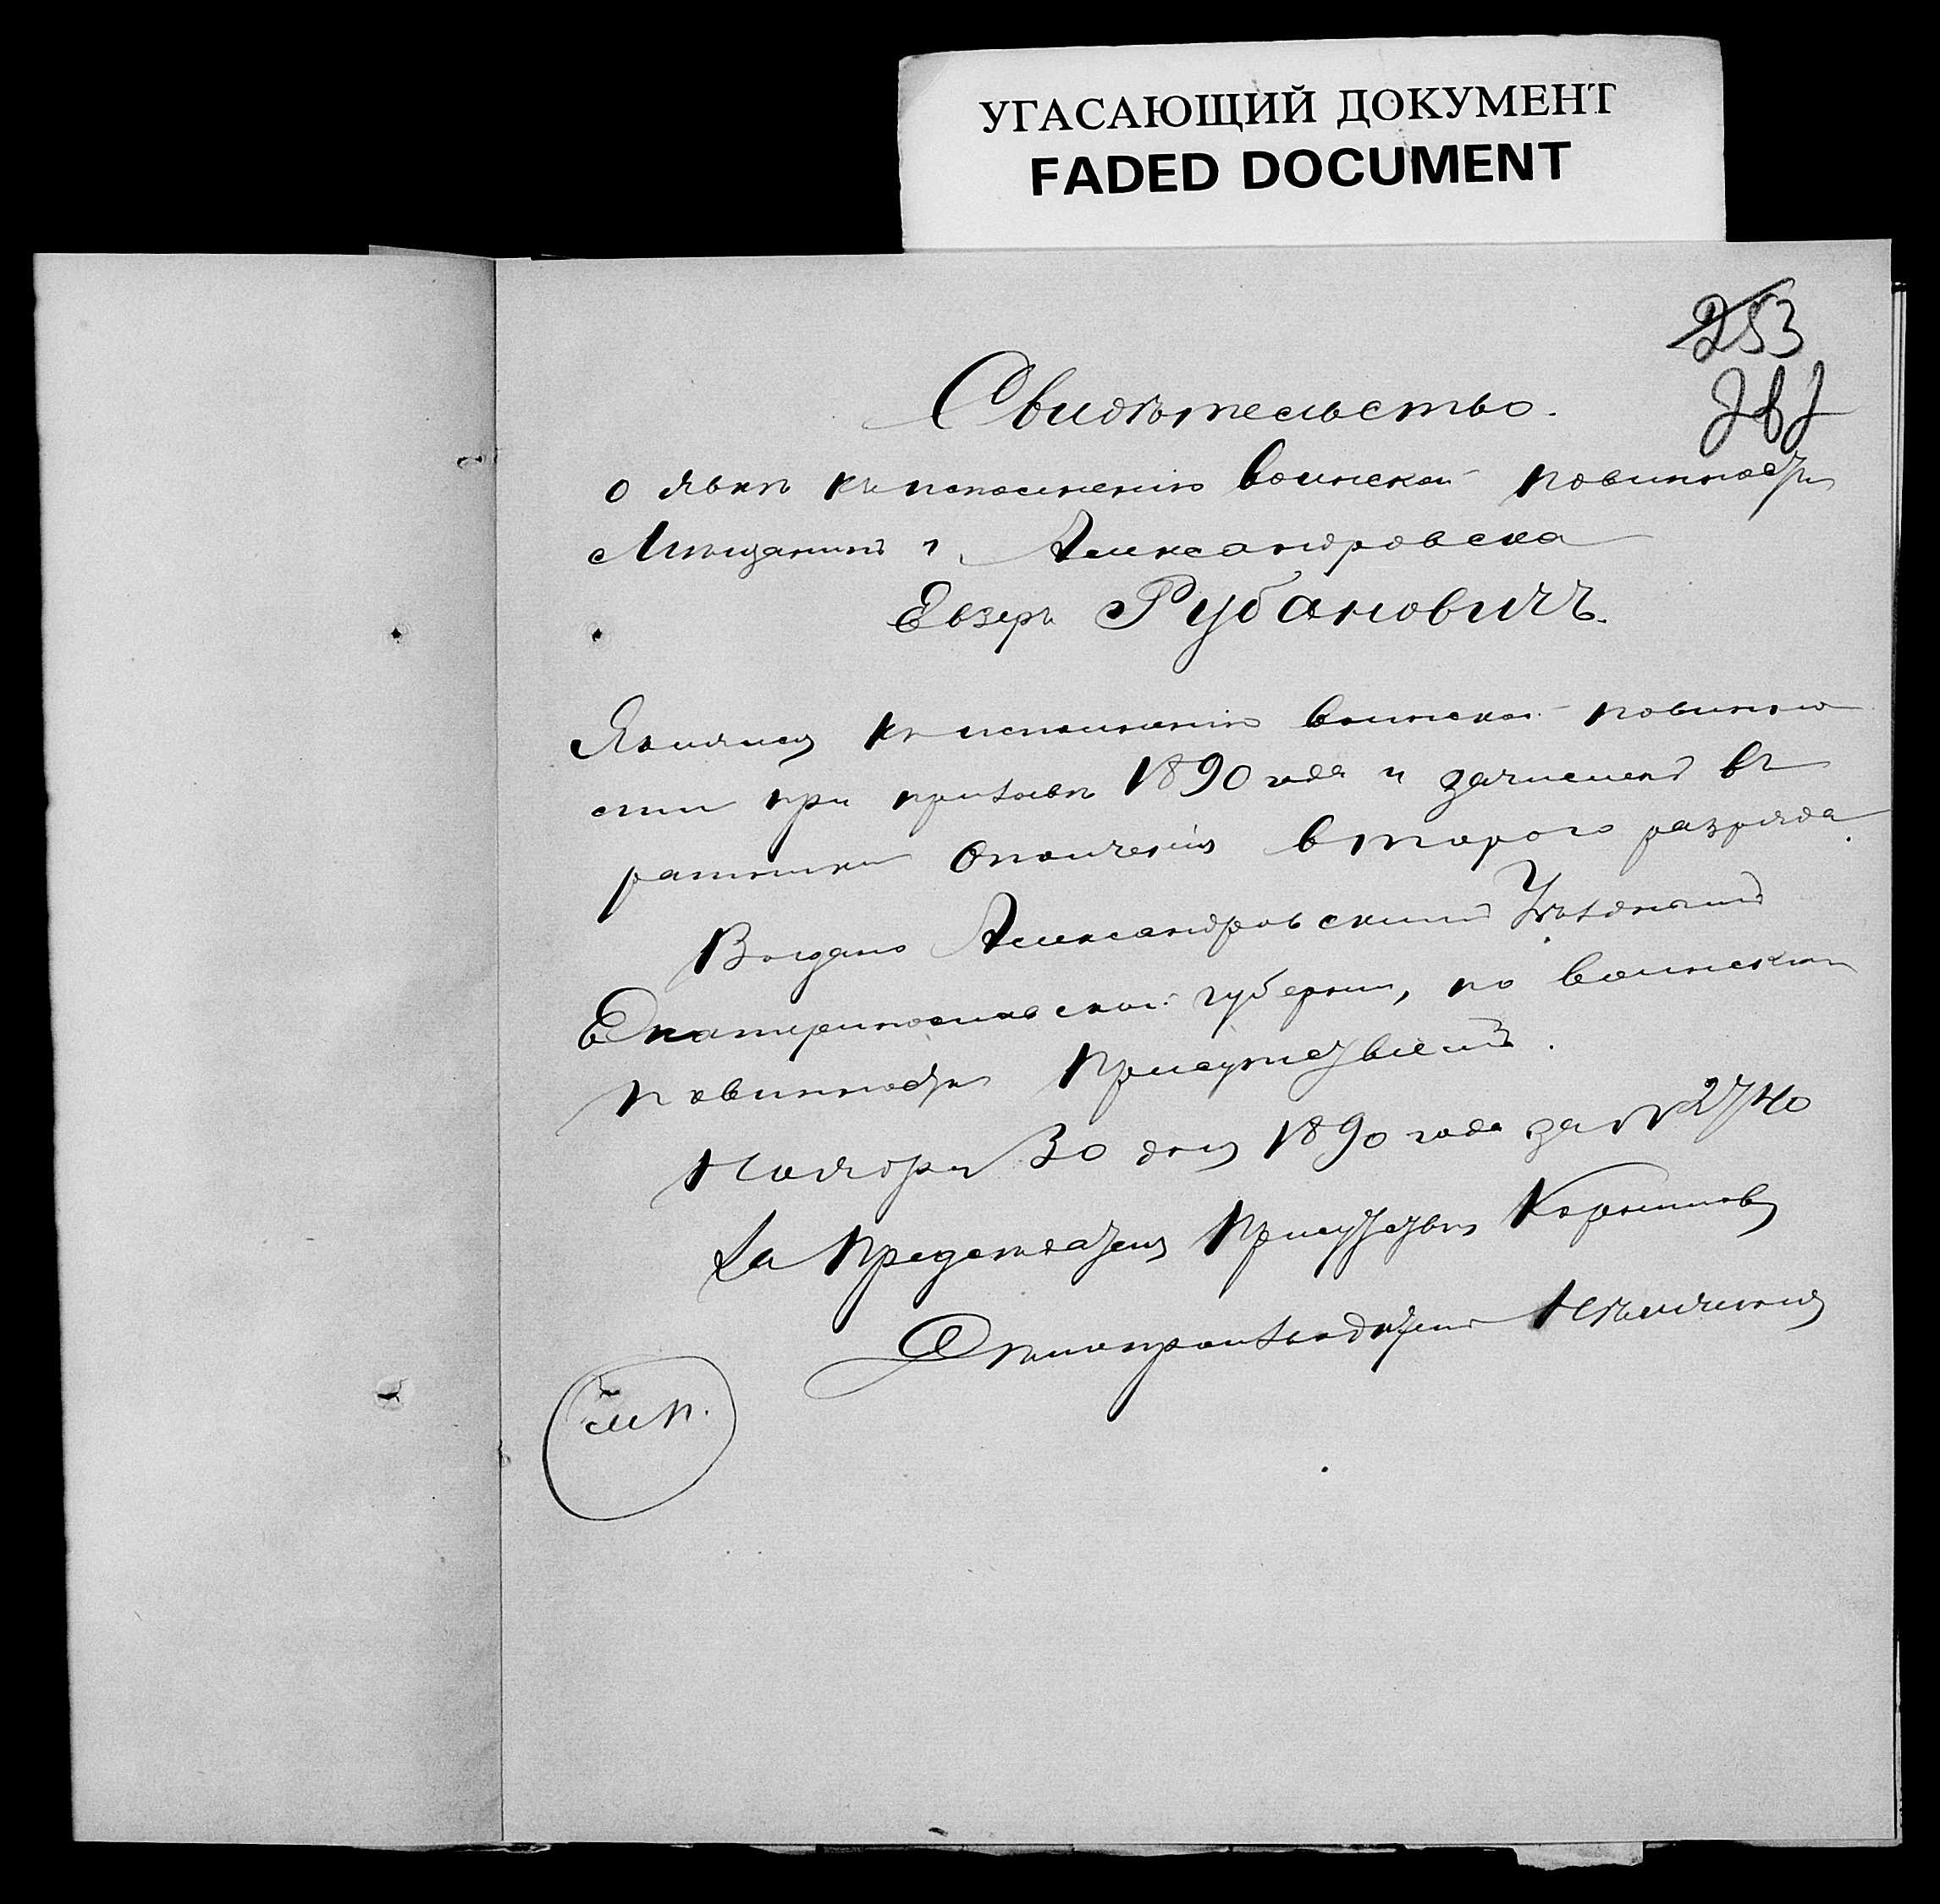 УГАСАЮЩИЙ ДОКУМЕНТ
FADED DOCUMENT
253
Свидѣтельство.
о явкѣ къ исполненію воинской повинности
Мѣщанинъ г. Александровска
Евзеръ Рубановичъ.
Явился къ исполненію воинской повинно
сти при призывѣ 1890 года и зачисленъ въ
ратники ополченія второго разряда.
Выдано Александровскимъ Уѣзднымъ
Екатеринославской губерніи, по воинской
повинности Присутствіемъ.
Ноября 30 дня 1890 года за № 2740
За Предсѣдателя Присутствія
Дѣлопроизводитель
М.П.